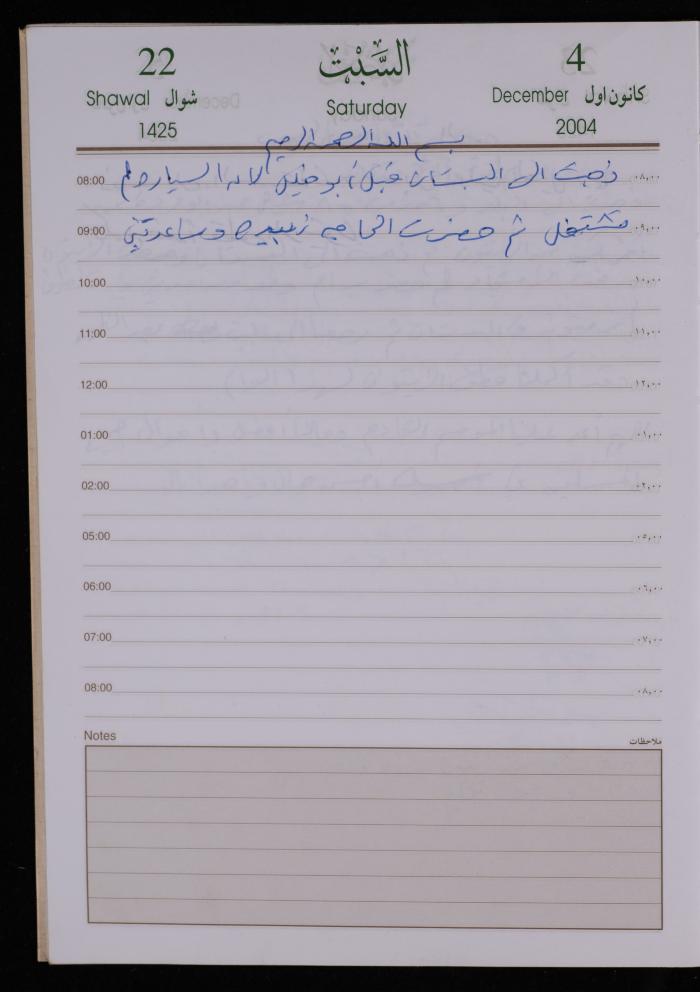 22 السَّبْت 4
Shawal شوال December كانون اول
Saturday
1425 2004
بسم الله الرحمن الرحيم
08:00 ذهبت الى البستان قبل أبو خليل لانه السياره لم ٠٨,٠٠
09:00 تشتغل ثم حضرت الحاجه زبيده وساعدتني ٠٩,٠٠
10:00 ١٠,٠٠
11:00 ١١,٠٠
12:00 ١٢,٠٠
01:00 ٠١,٠٠
02:00 ٠٢,٠٠
05:00 ٠٥,٠٠
06:00 ٠٦,٠٠
07:00 ٠٧,٠٠
08:00 ٠٨,٠٠
Notes ملاحظات